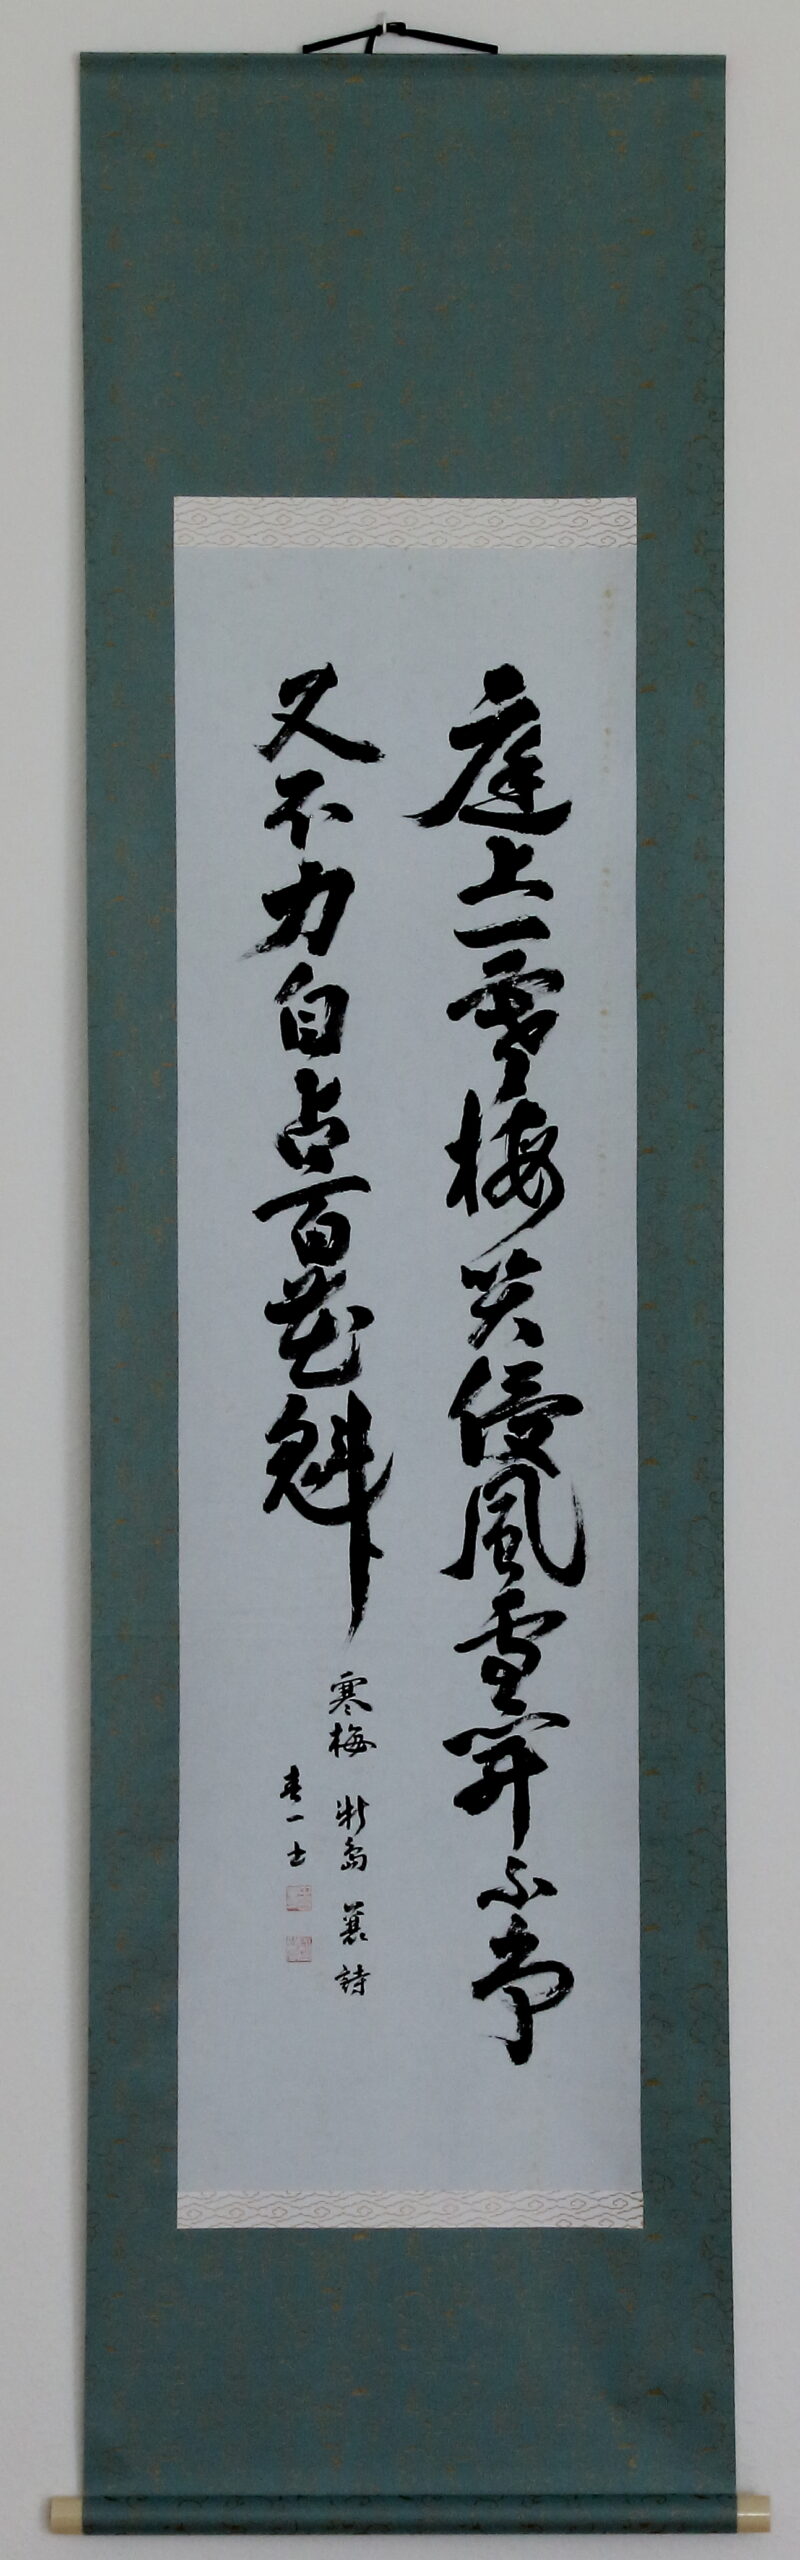 庭上一寒梅笑侵風雪開不争
又不力自占百花魁
寒梅 新島襄詩
一士